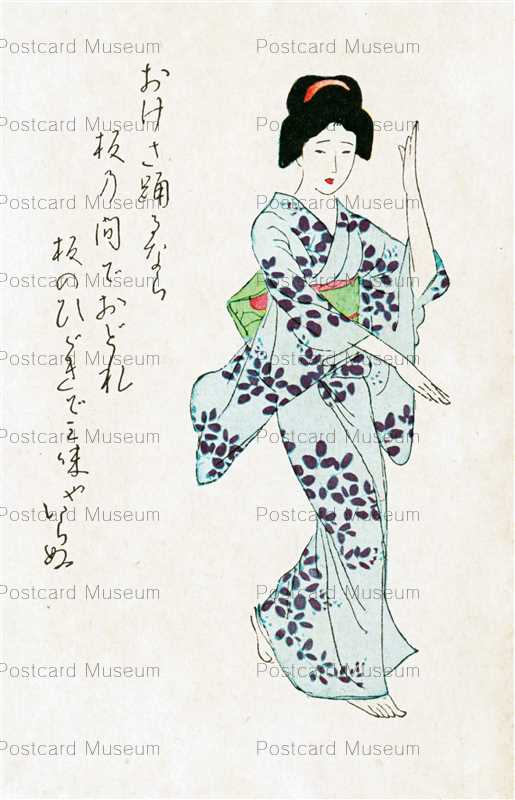 おけさ踊るなら
板の間でおどれ
板のひゞきで三味やいらぬ
Postcard Museum Postcard Museum
Postcard Museum Postcard Museum
Postcard Museum Postcard Museum
Postcard Museum Postcard Museum
Postcard Museum Postcard Museum
Postcard Museum Postcard Museum
Postcard Museum Postcard Museum
Postcard Museum Postcard Museum
Postcard Museum Postcard Museum
Postcard Museum Postcard Museum